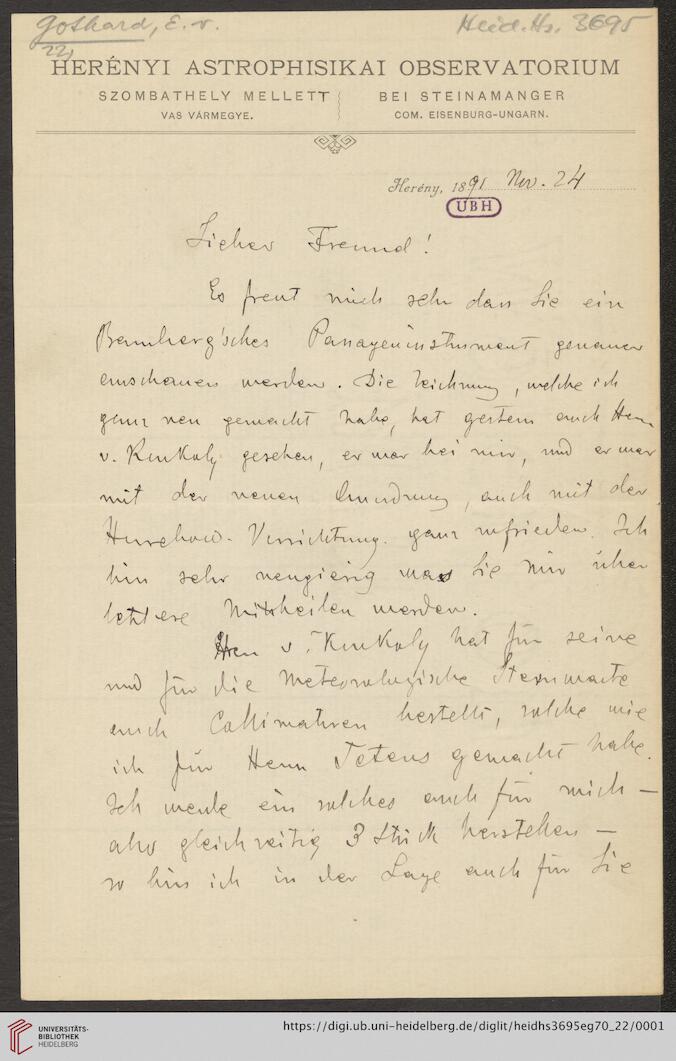 Gothard, E. v.
Heid. Hs. 3695
22,
HERÉNYI ASTROPHISIKAI OBSERVATORIUM
SZOMBATHELY MELLETT
BEI STEINAMANGER
VAS VÁRMEGYE.
COM. EISENBURG-UNGARN.
Herény, 1891 Nov. 24
UBH
Lieber Freund!
Es freut mich sehr dass Sie ein
Bamberg'sches Passageinstrument genauer
anschauen werden. Die Zeichnung, welche ich
ganz neu gemacht habe, hat gestern auch Herr
v. Konkoly gesehen, er war bei mir, und er war
mit der neuen Anordnung, auch mit der
Horrebow-Vorrichtung ganz zufrieden. Ich
bin sehr neugierig was Sie mir über
letztere Mittheilen werden.
Herr v. Konkoly hat für seine
und für die Meteorologische Sternwarte
auch Collimatoren bestellt, solche wie
ich für Herrn Tetens gemacht habe.
Ich werde ein solches auch für mich —
also gleichzeitig 3 Stück herstellen —
so bin ich in der Lage auch für Sie
UNIVERSITÄTS-
BIBLIOTHEK
HEIDELBERG
https://digi.ub.uni-heidelberg.de/diglit/heidhs3695eg70_22/0001